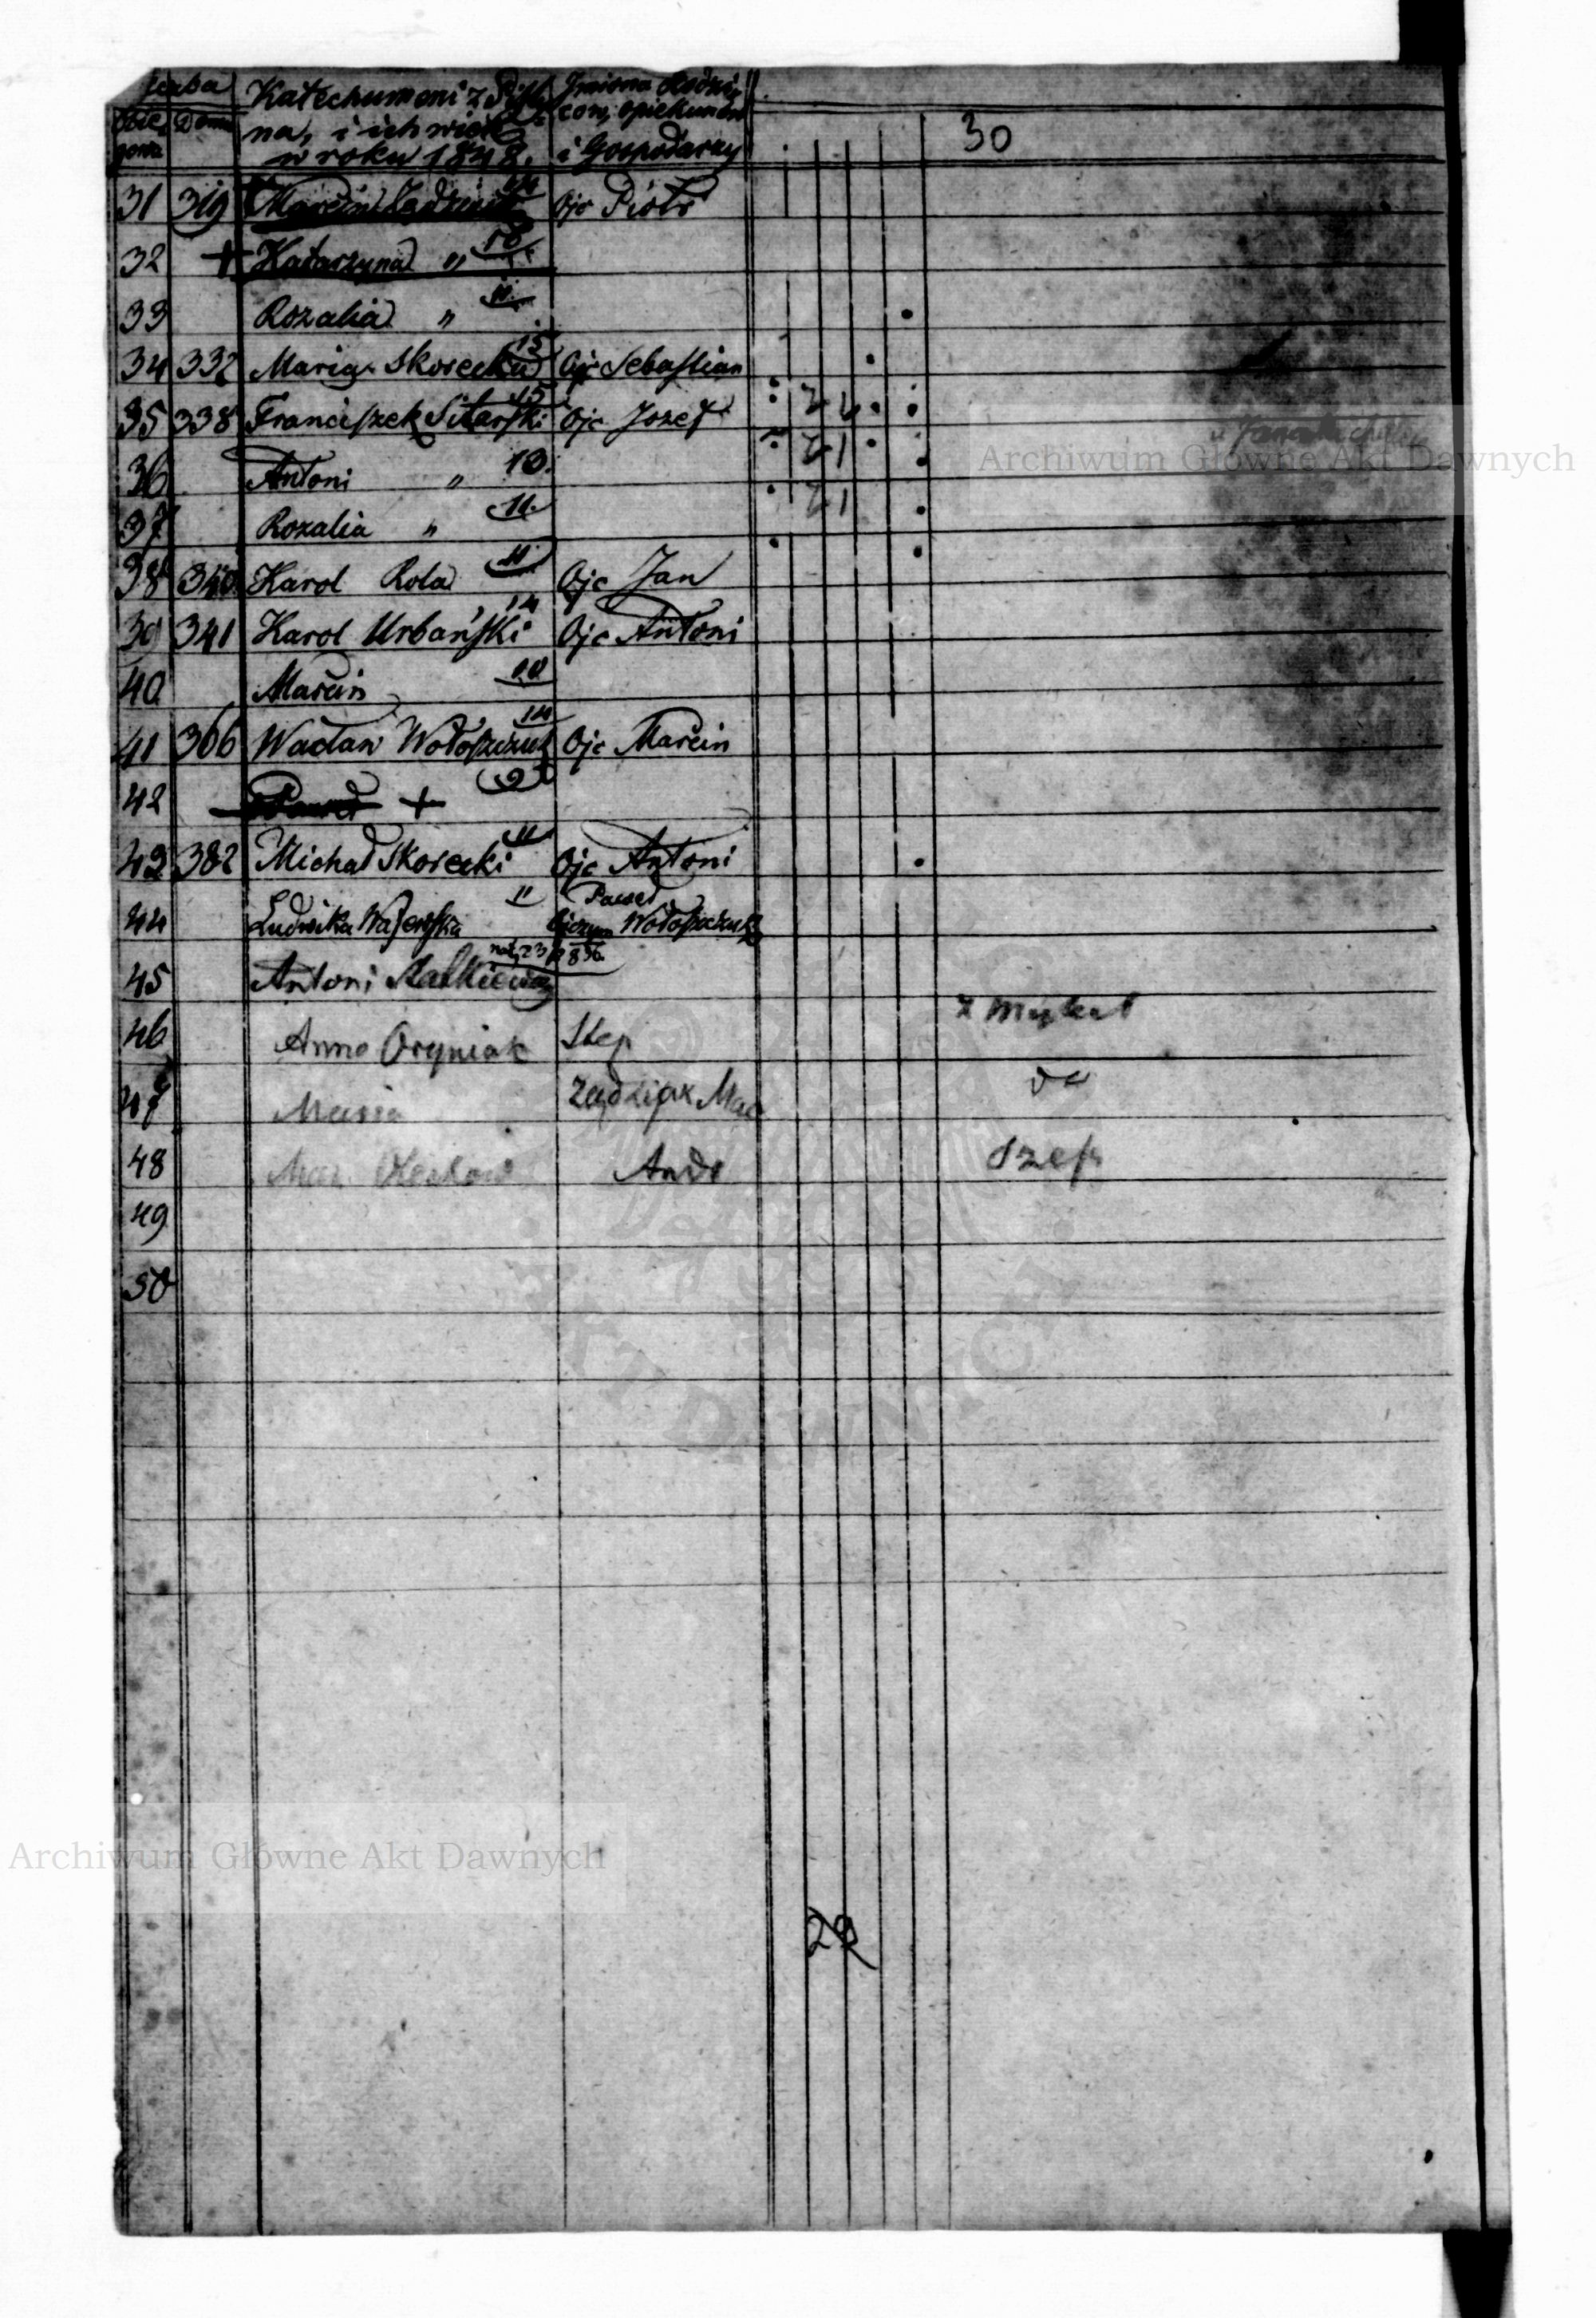 Liczba
Katechumeni z
Imiona Rodzi-
Bie-
Domu
na, i ich wiek
ców, opiekunów
gowa
w roku 1848.
i Gospodarzy
30
31 319 Marcin 14 Ojc Piotr
32 + Katarzyna "
33 Rozalia " 11.
34 332 Marya Skorecka 15 Ojc Sebastian
35 338 Franciszek Sitarski 15 Ojc Jozef
36 Antoni " 13.
37 Rozalia " 11.
38 340 Karol Rola 11 Ojc Jan
39 341 Karol Urbański 14 Ojc Antoni
40 Marcin 10
41 366 Wacław Wołoszczuk 14 Ojc Marcin
42 Paweł + 9
43 382 Michał Skorecki 11 Ojc Antoni
44 Ludwika 11 Paweł
Ojczym Wołoszczuk
45 Antoni
46 Anna Oryniak Step
47 Maria
48 Andr
49
50
29
Archiwum Główne Akt Dawnych
Archiwum Główne Akt Dawnych
AKT DAWNYCH